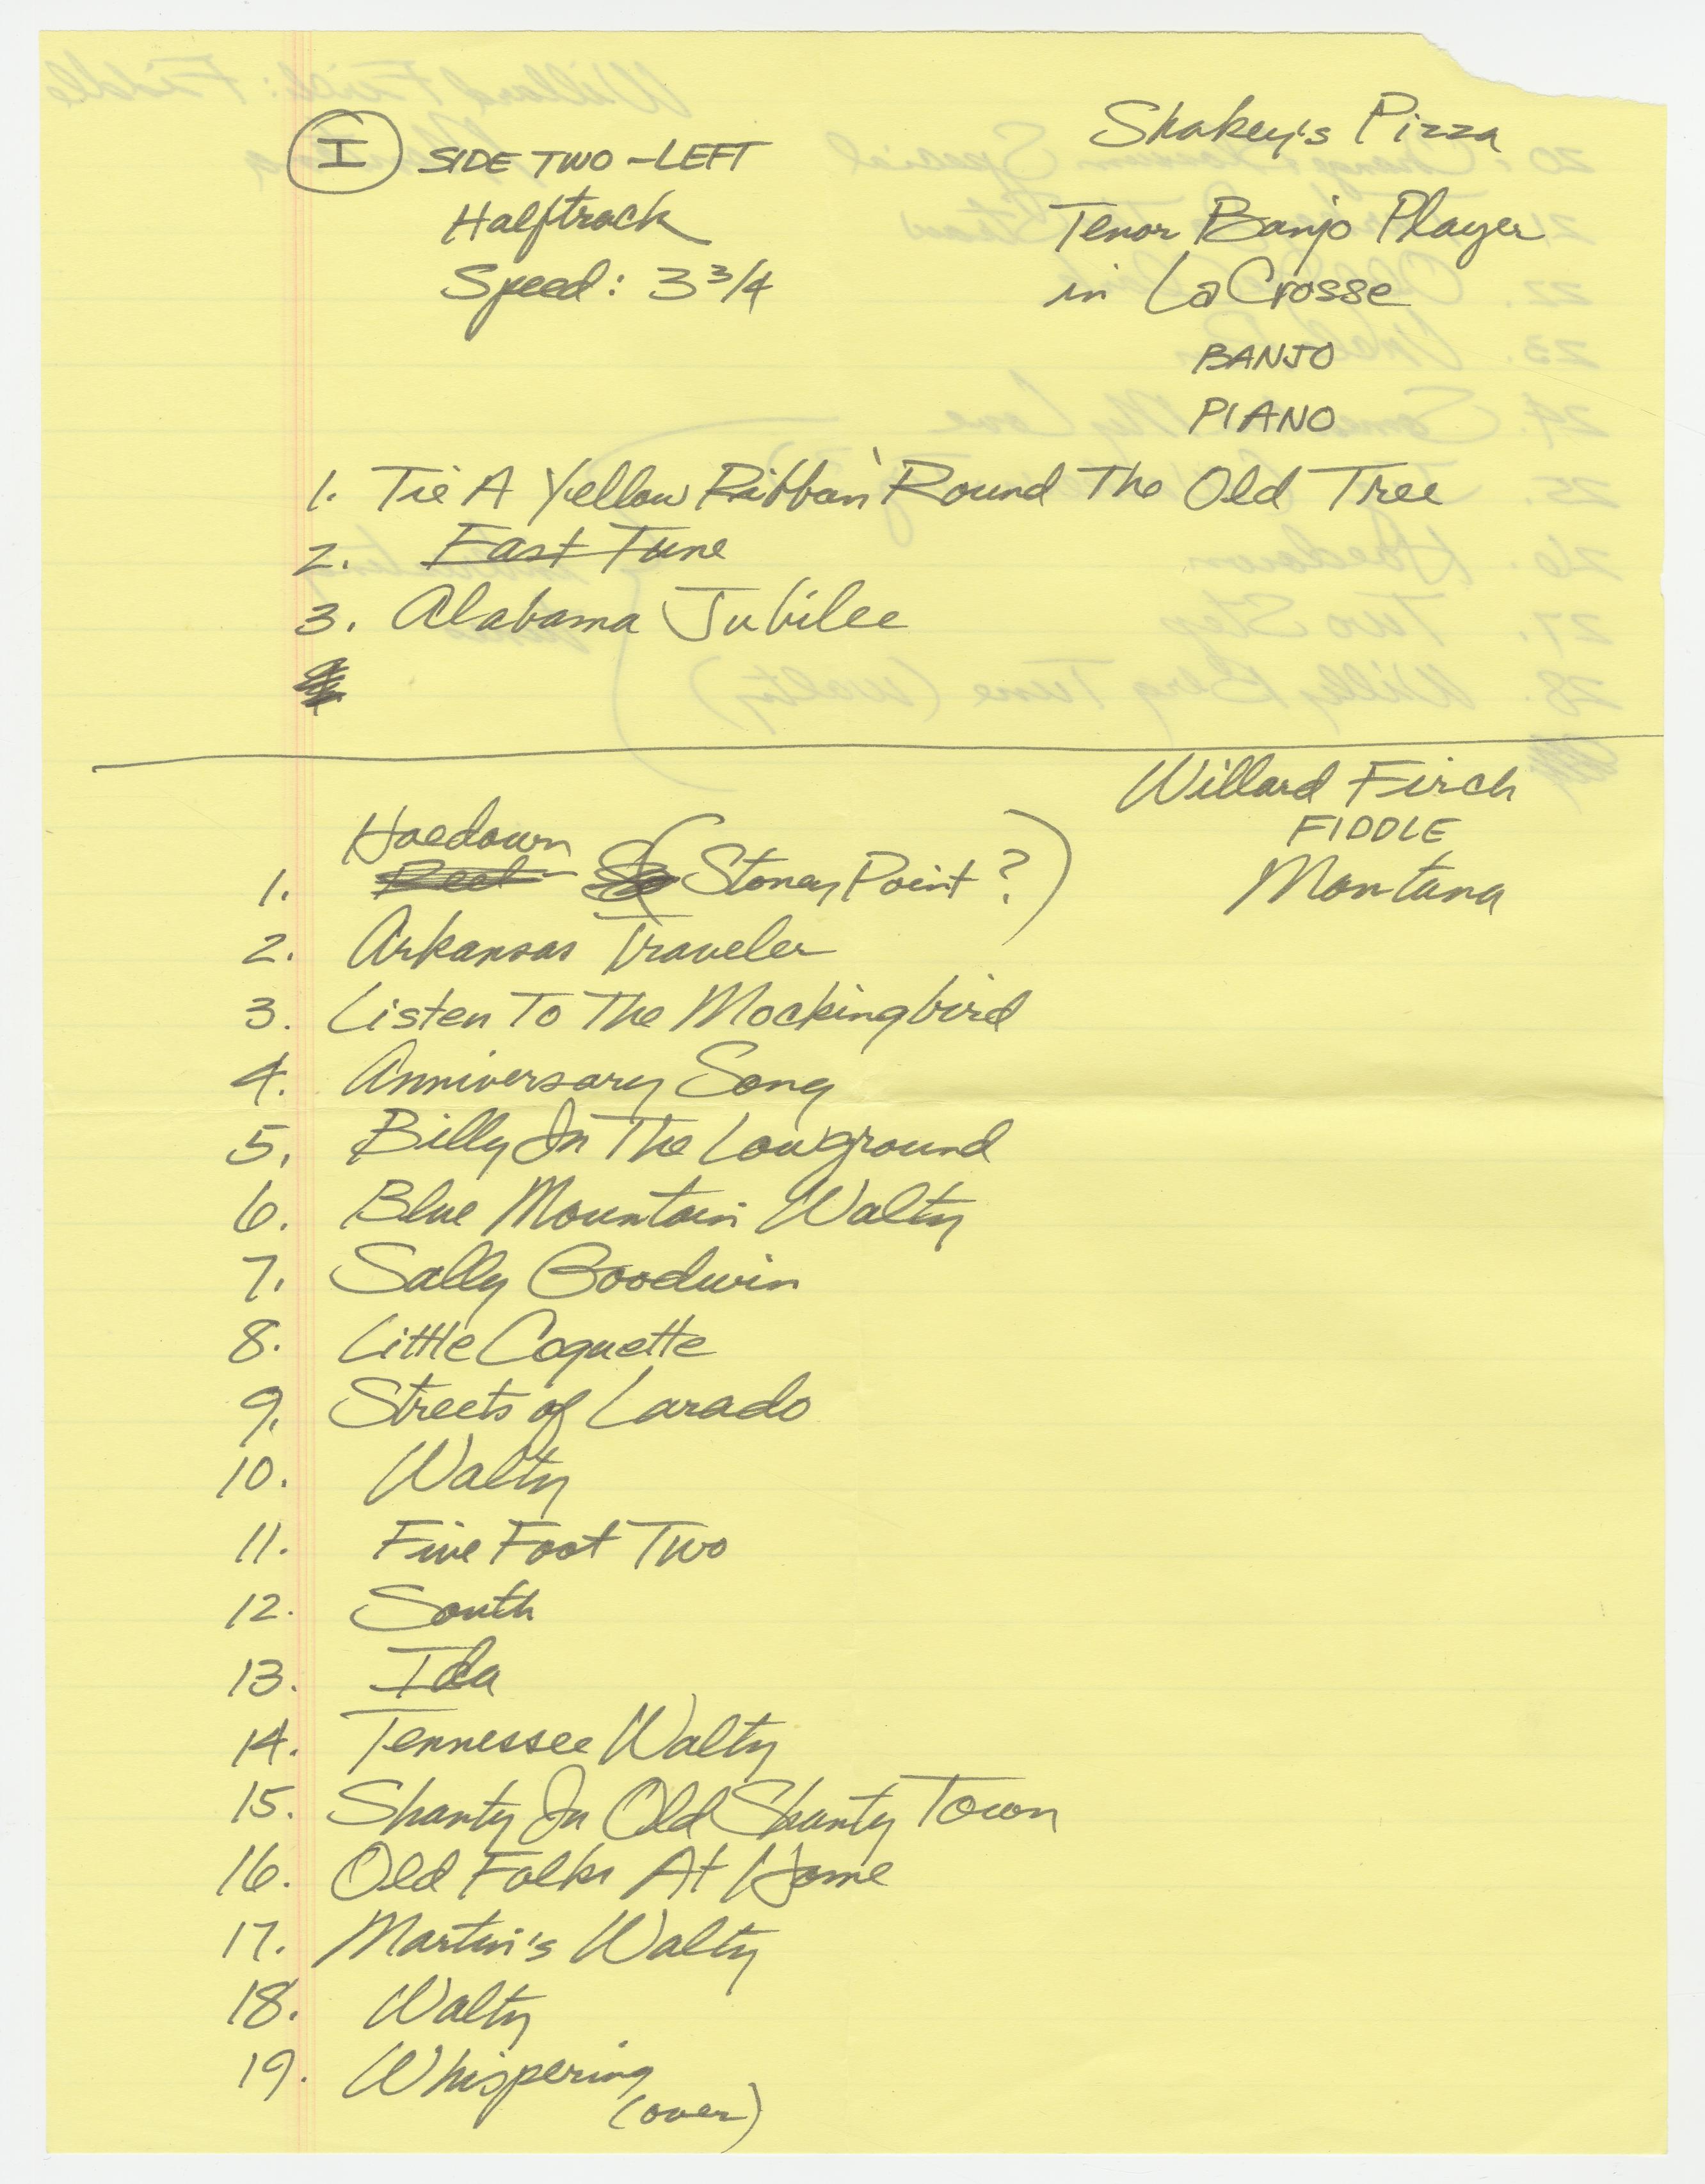 I SIDE TWO - LEFT
Halftrack
Speed: 3 3/4
Shakey's Pizza
Tenor Banjo Player
in LaCrosse
BANJO
PIANO
1. Tie A Yellow Ribbon 'Round The Old Tree
2. Fast Tune
3. Alabama Jubilee
Willard Firch
FIDDLE
Montana
Hoedown
1. Reel (Stoney Point?)
2. Arkansas Traveler
3. Listen To The Mockingbird
4. Anniversary Song
5. Billy In The Lowground
6. Blue Mountain Waltz
7. Sally Goodwin
8. Little Coquette
9. Streets of Larado
10. Waltz
11. Five Foot Two
12. South
13. Ida
14. Tennessee Waltz
15. Shanty In Old Shanty Town
16. Old Folks At Home
17. Martin's Waltz
18. Waltz
19. Whispering
(over)